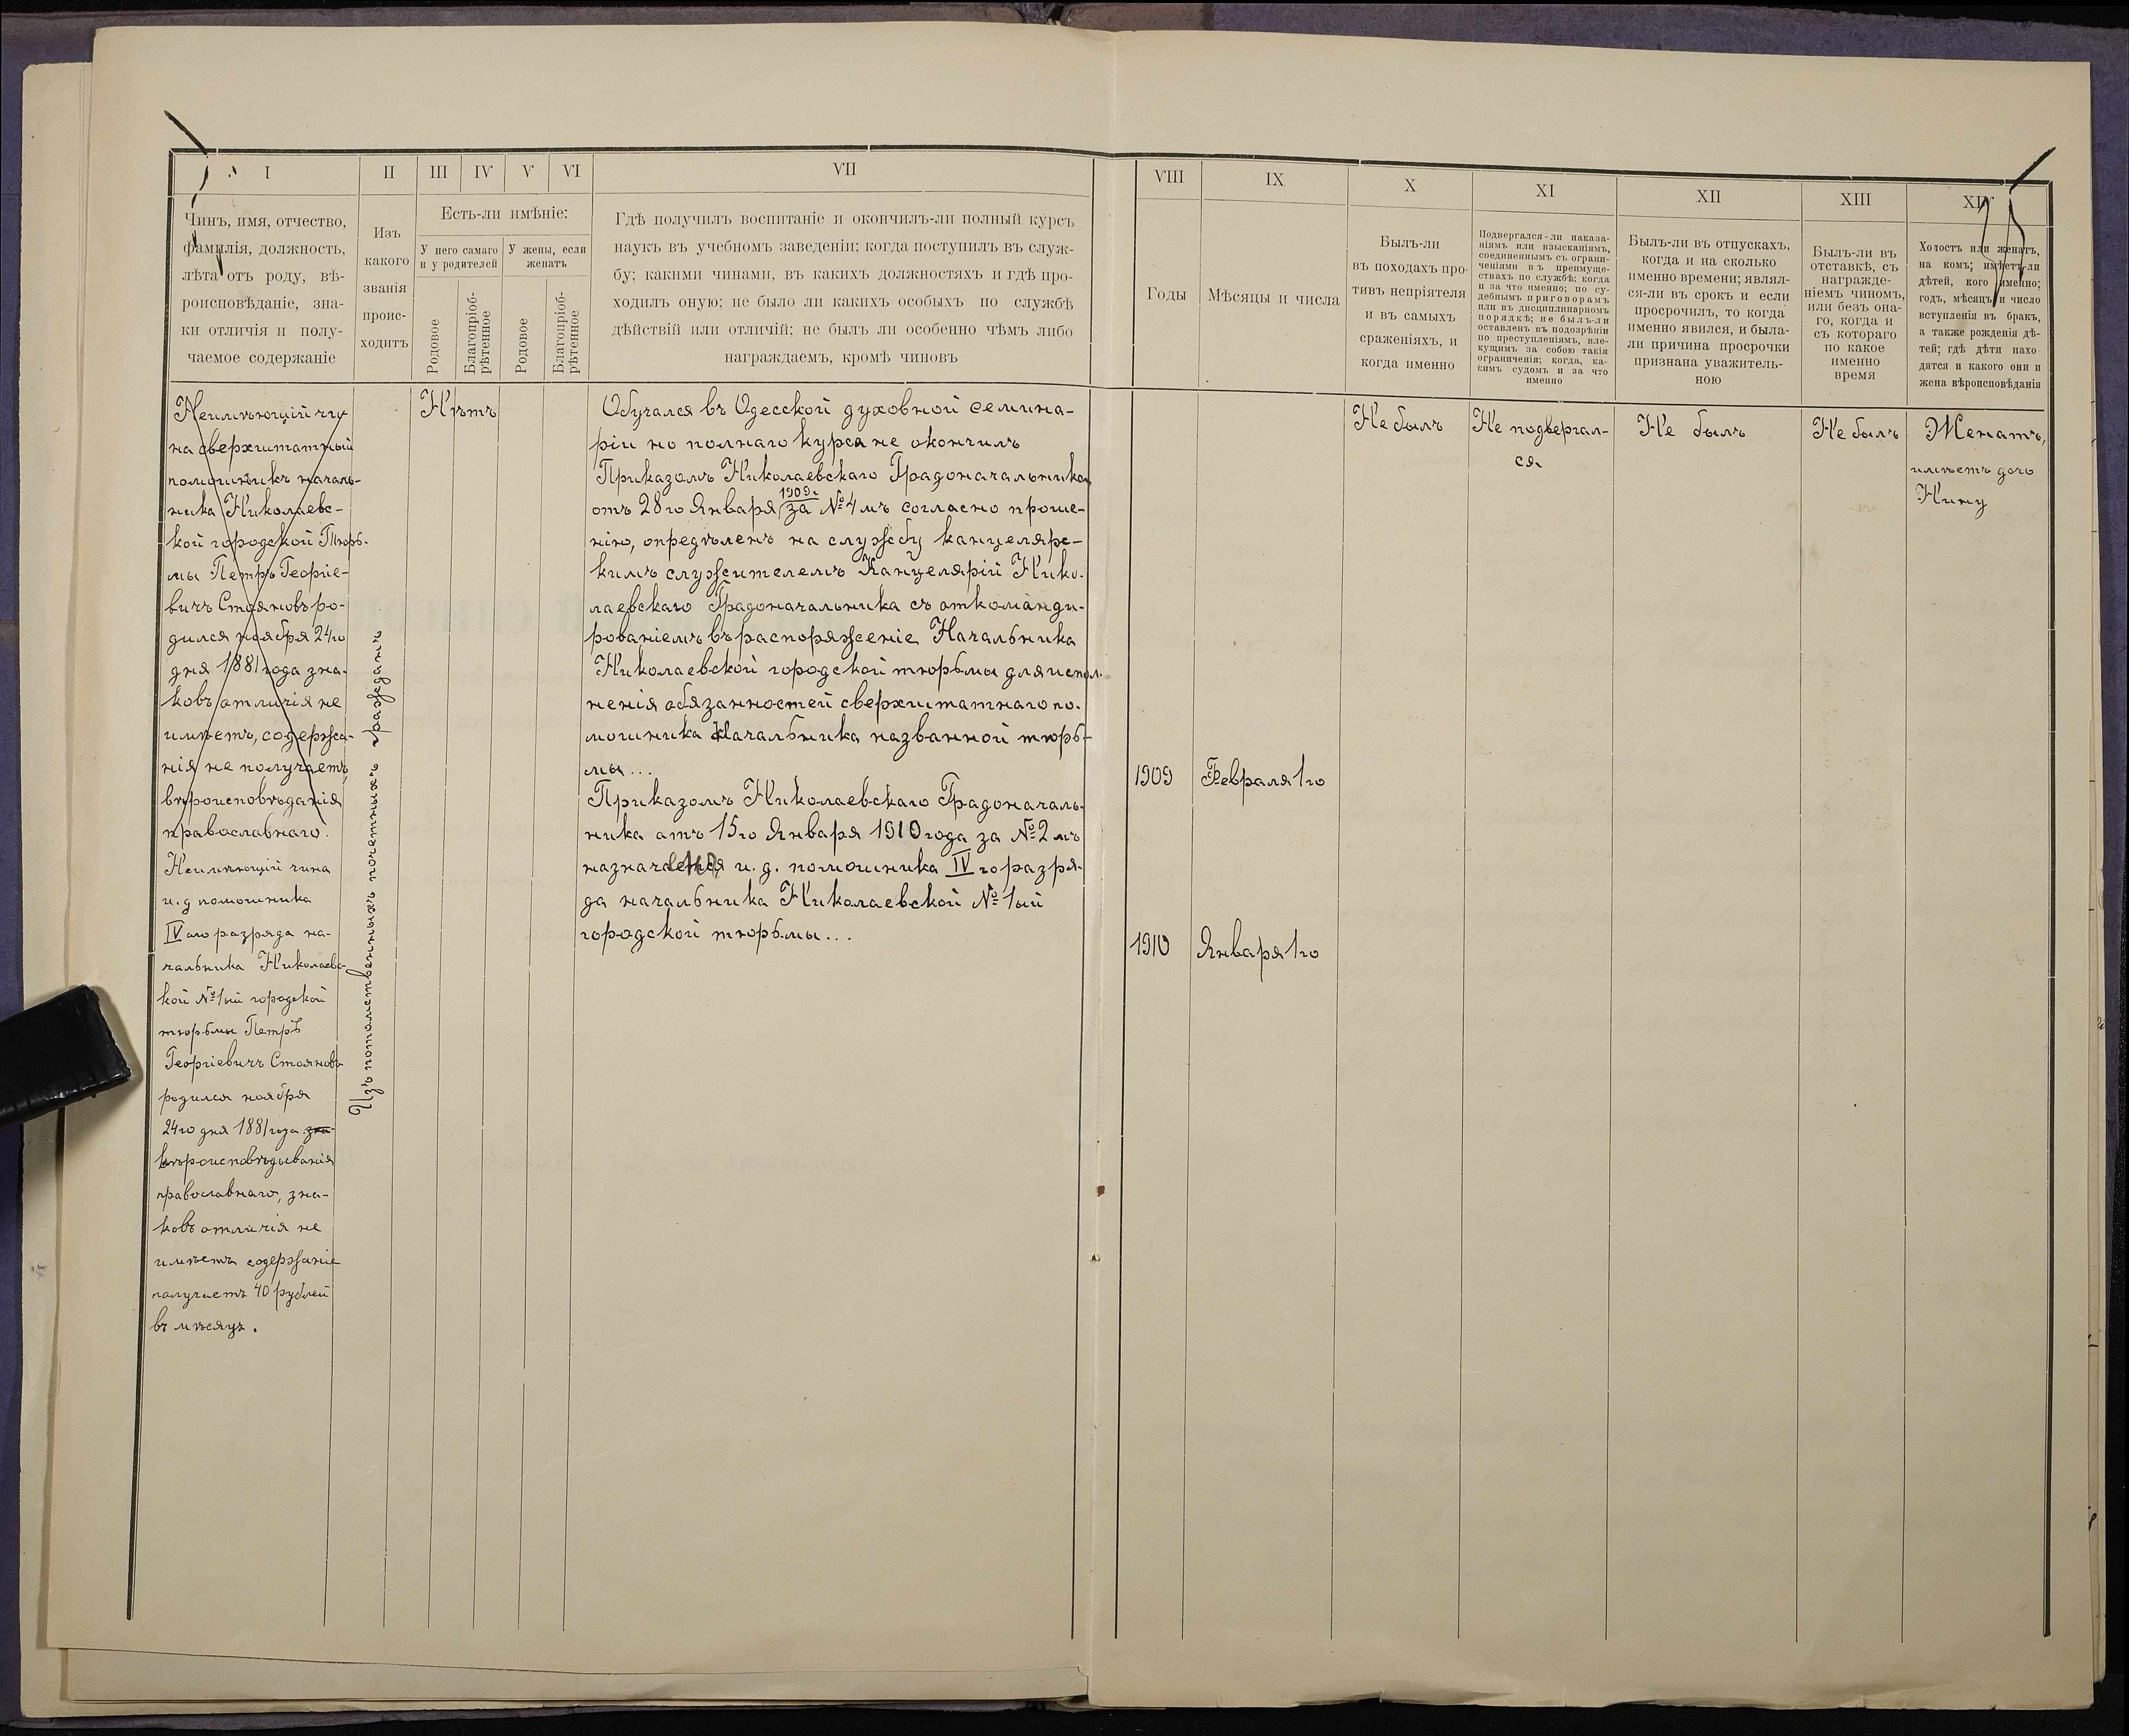 I
II
III
IV
V
VI
VII
VIII
IX
X
XI
XII
XIII
XIV
Чинъ, имя, отчество,
фамилія, должность,
лѣта отъ роду, вѣ-
роисповѣданіе, зна-
ки отличія и полу-
чаемое содержаніе
Изъ
какого
званія
проис-
ходитъ
Есть-ли имѣніе:
У него самаго
и у родителей
У жены, если
женатъ
Родовое
Благопріоб-
рѣтенное
Родовое
Благопріоб-
рѣтенное
Гдѣ получилъ воспитаніе и окончилъ-ли полный курсъ
наукъ въ учебномъ заведеніи; когда поступилъ въ служ-
бу; какими чинами, въ какихъ должностяхъ и гдѣ про-
ходилъ оную; не было ли какихъ особыхъ по службѣ
дѣйствій или отличій; не былъ ли особенно чѣмъ либо
награждаемъ, кромѣ чиновъ
Годы
Мѣсяцы и числа
Былъ-ли
въ походахъ про-
тивъ непріятеля
и въ самыхъ
сраженіяхъ, и
когда именно
Подвергался-ли наказа-
ніямъ или взысканіямъ,
соединеннымъ съ ограни-
ченіями въ преимуще-
ствахъ по службѣ; когда
и за что именно; по су-
дебнымъ приговорамъ
или въ дисциплинарномъ
порядкѣ; не былъ-ли
оставленъ въ подозрѣніи
по преступленіямъ, вле-
кущимъ за собою такія
ограниченія; когда, ка-
кимъ судомъ и за что
именно
Былъ-ли въ отпускахъ,
когда и на сколько
именно времени; являл-
ся-ли въ срокъ и если
просрочилъ, то когда
именно явился, и была-
ли причина просрочки
признана уважитель-
ною
Былъ-ли въ
отставкѣ, съ
награжде-
ніемъ чиномъ,
или безъ она-
го, когда и
съ котораго
по какое
именно
время
Холостъ или женатъ,
на комъ; имѣетъ-ли
дѣтей, кого именно;
годъ, мѣсяцъ и число
вступленія въ бракъ,
а также рожденія дѣ-
тей; гдѣ дѣти нахо
дятся и какого они и
жена вѣроисповѣданія
Неимѣющій чи
на сверхштатный
помощникъ началь-
ника Николаевс-
кой городской Тюрь-
мы Петръ Георгіе-
вичъ Стояновъ ро-
дился ноября 24го
дня 1881 года зна-
ковъ отличія не
имѣетъ, содержа-
нія не получаетъ
вѣроисповѣданія
православнаго.
Неимѣющій чина
и. д помошника
IV аго разряда на-
чальника Николаевс-
кой №1ый городской
тюрьмы Петръ
Георгіевичъ Стояновъ
родился ноября
24го дня 1881 года зна-
вѣроисповѣдыванія
православнаго, зна-
ковъ отличія не
имѣетъ содержаніе
получаетъ 40 рублей
въ мѣсяцъ.
Изъ потомственныхъ почетныхъ гражданъ
Нѣтъ
Обучался въ Одесской духовной семина-
ріи но полнаго курса не окончилъ
Приказомъ Николаевскаго Градоначальника
1909г
отъ 28го Января за №4мъ согласно проше-
нію, опредѣленъ на службу канцелярс-
кимъ служителемъ Канцелярій Нико-
лаевскаго Градоначальника съ откоманди-
рованіемъ въ распоряженіе Начальника
Николаевской городской тюрьмы для испол-
ненія обязанностей сверхштатнаго по-
мошника Начальника названной тюрь-
мы...
Приказомъ Николаевскаго Градоначаль-
ника отъ 15го Января 1910 года за №2мъ
и. д. помошника IV го разря-
да начальника Николаевской №1ый
городской тюрьмы...
1909
Февраля 1го
1910
Января 1го
Не былъ
Не подвергал-
ся
Не былъ
Не былъ
Женатъ,
имѣетъ дочь
Нину